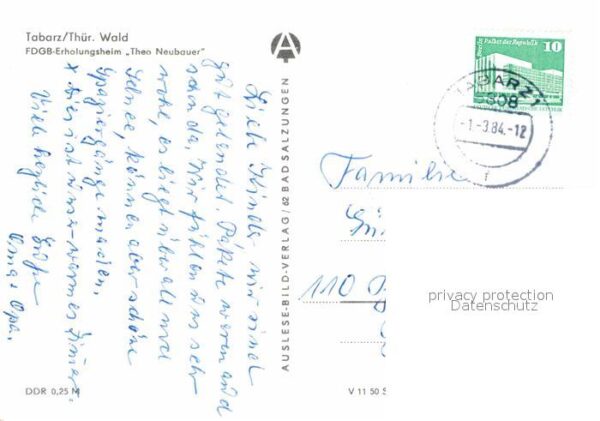 Tabarz/Thür. Wald
FDGB-Erholungsheim „Theo Neubauer"
Liebe Kinder, wir sind
gut gelandet. Pakete waren auch
schon da. Wir fühlen uns sehr
wohl, es liegt überall noch
Schnee, können aber schöne
Spaziergänge machen.
x hier ist unser warmes Zimmer
Viele herzliche Grüße
Oma + Opa.
AUSLESE-BILD-VERLAG / 62 BAD SALZUNGEN
Berlin Palast der Republik
10
TABARZ 1
5808
-1-3.84.-12
f
Familie
110
privacy protection
Datenschutz
DDR 0,25 M
V 11 50